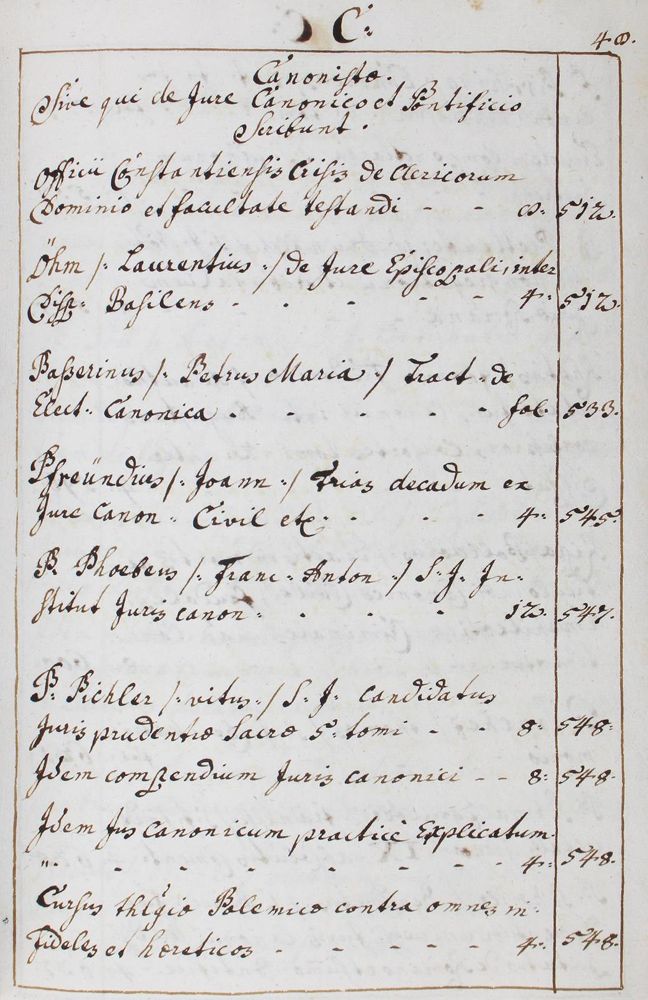 C:
42.
Canonistæ.
Sive qui de Jure Canonico et Pontificio
Scribunt.
Officii Constantiensis Crisis de Clericorum
Dominio et facultate testandi - - 512.
Öhm /: Laurentius :/ de Jure Episcopali, inter
Diss: Basilens - - - - - 4: 512.
Paßerinus /: Petrus Maria :/ Tract: de
Elect: Canonica - - - - - fol: 533.
Pfreündius /: Joann: :/ Trias decadum ex
Jure Canon: Civil etc: - - - 4: 545.
P. Phoebeus /: Franc: Anton :/ S. J. In-
stitut Juris canon: - - - - 12. 547.
P. Pichler /: vitus :/ S. J. Candidatus
Jurisprudentiæ Sacræ 5. tomi - - 8: 548.
Idem compendium Juris canonici - - 8: 548.
Idem Jus canonicum practice Explicatum
" - - - - - - - - 4: 548.
Cursus Polemicæ contra omnes in-
fideles et hæreticos - - - - - 4: 548.